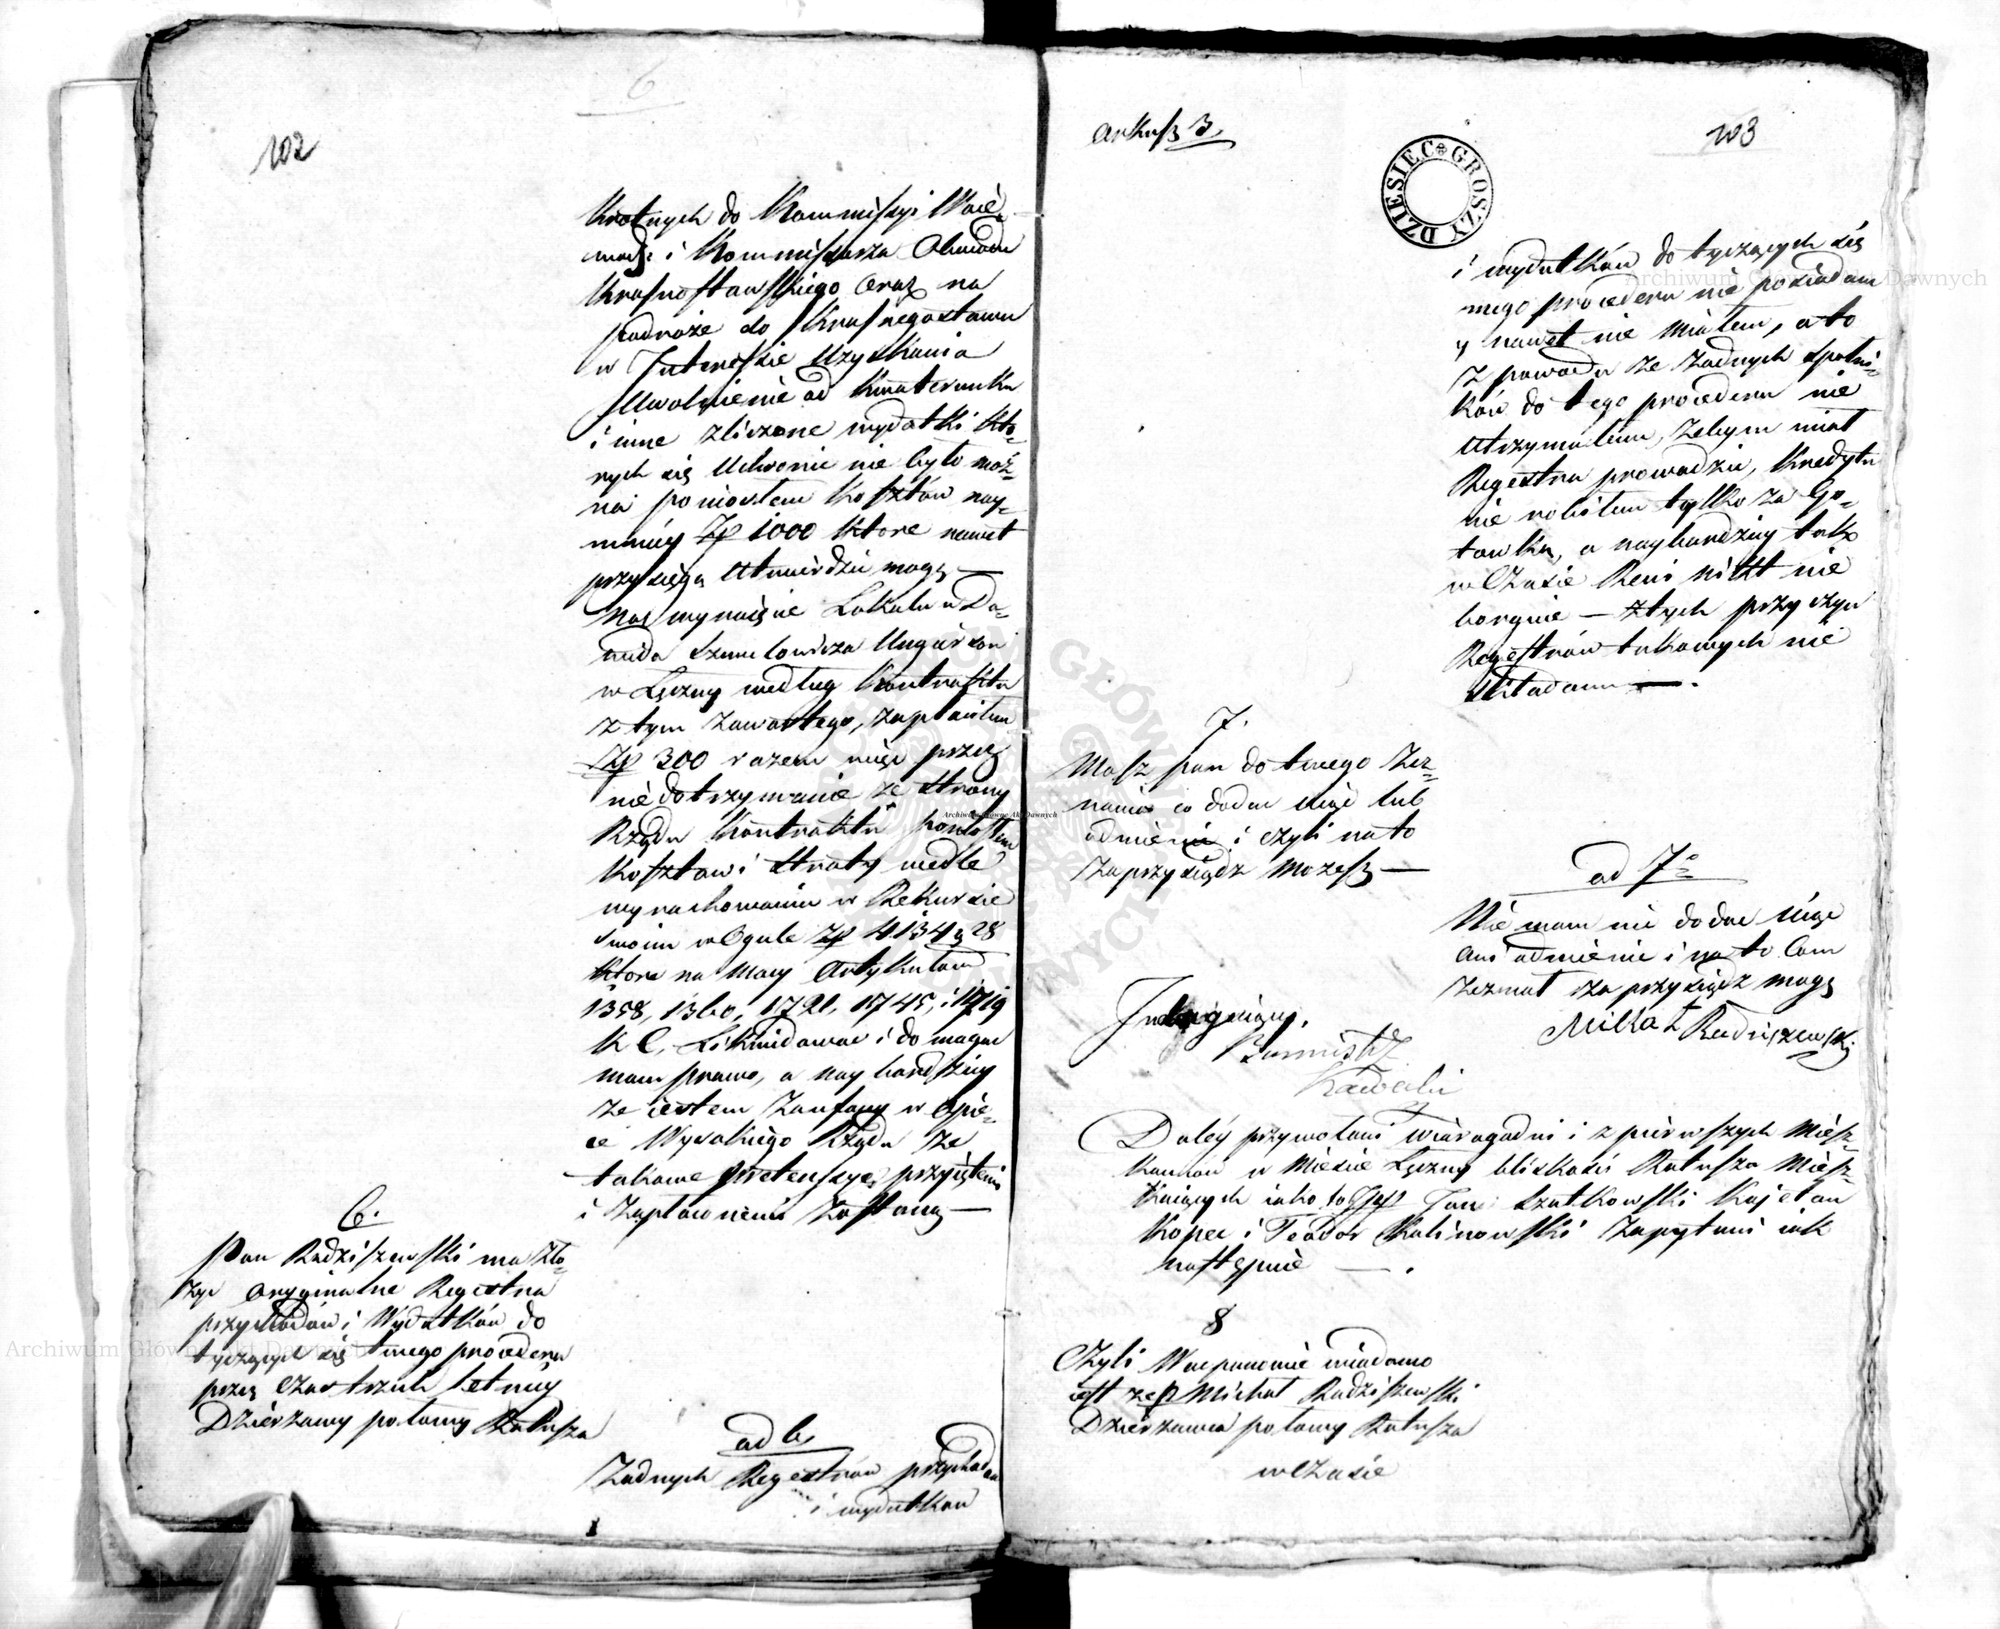 102
6
krotnych do Kommissyi Woie-
wodz: i Kommissarza Obwodu
Krasnostawskiego oraz na
podroże do Krasnegostawu
w Interessie uzyskania
Uwolnienie od kwaterunku
i inne zliczone wydatki kto-
rych się uchronić nie było moż-
na poniosłem kosztów nay-
mniey Zp 1000 ktore nawet
przysięgą utwierdzić mogę —
Na wynaięcie Lokalu u Da-
wida Szmulowicza Ungierson
w Łęczny według Kontraktu
z tym zawartego, zapłaciłem
Zp 300 razem więc przez
niedotrzymanie ze strony
Rządu Kontraktu poniosłem
kosztow i straty wedle
wyrachowania w Rekursie
swoim w Ogule Zp 4134 g 28
ktore na mocy Artykułow
1358, 1360, 1721, 1745, i 1719
K C. Likwidować i domagać
mam prawo, a naybardziey
że iestem zaufany w Opie-
ce Wysokiego Rządu że
takowe pretensye przyiętemi
i zapłaconemi zostaną —
6.
Pan Radziszewski ma zło-
żyć oryginalne Regestra
przychodów i Wydatków do
tyczących się twego procederu
przez czas trzech letniey
Dzierżawy połowy Ratusza
ad 6.
Żadnych Regestrów przychodów
i wydatków
arkusz 3
103
DZIESIEC GROSZY
i wydatków do tyczących się
mego procederu nie posiadam
y nawet nie miałem, a to
z powodu że żadnych spolni-
ków do tego procederu nie
utrzymałem, żebym miał
Regestra prowadzić, kredytu
nie robiłem tylko za Go-
towkę, a naybardziey tak
w czasie nikt nie
borguie — z tych przyczyn
Regestrów takowych nie
składam —.
7.
Masz pan do twego ze-
znania co dodać więc lub
odmienić i czyli na to
zaprzysiądz możesz —
ad 7o
Nie mam nic dodać więcy
ani odmienić i na to com
zeznał zaprzysiądz mogę
Michał Radziszewski
Burmistrz
Daley przywołani wiarogodni i z pierwszych Miesz-
kańców w Mieście Łęczny bliskości Ratusza Miesz-
kaiących iako to Jan Szatkowski Kajetan
Kopec i Teodor Kalinowski zapytani iak
następuie — .
8
Czyli Wacpanowie wiadomo
iest że P Michał Radziszewski
Dzierżawca połowy Ratusza
w czasie
Archiwum Główne Akt Dawnych